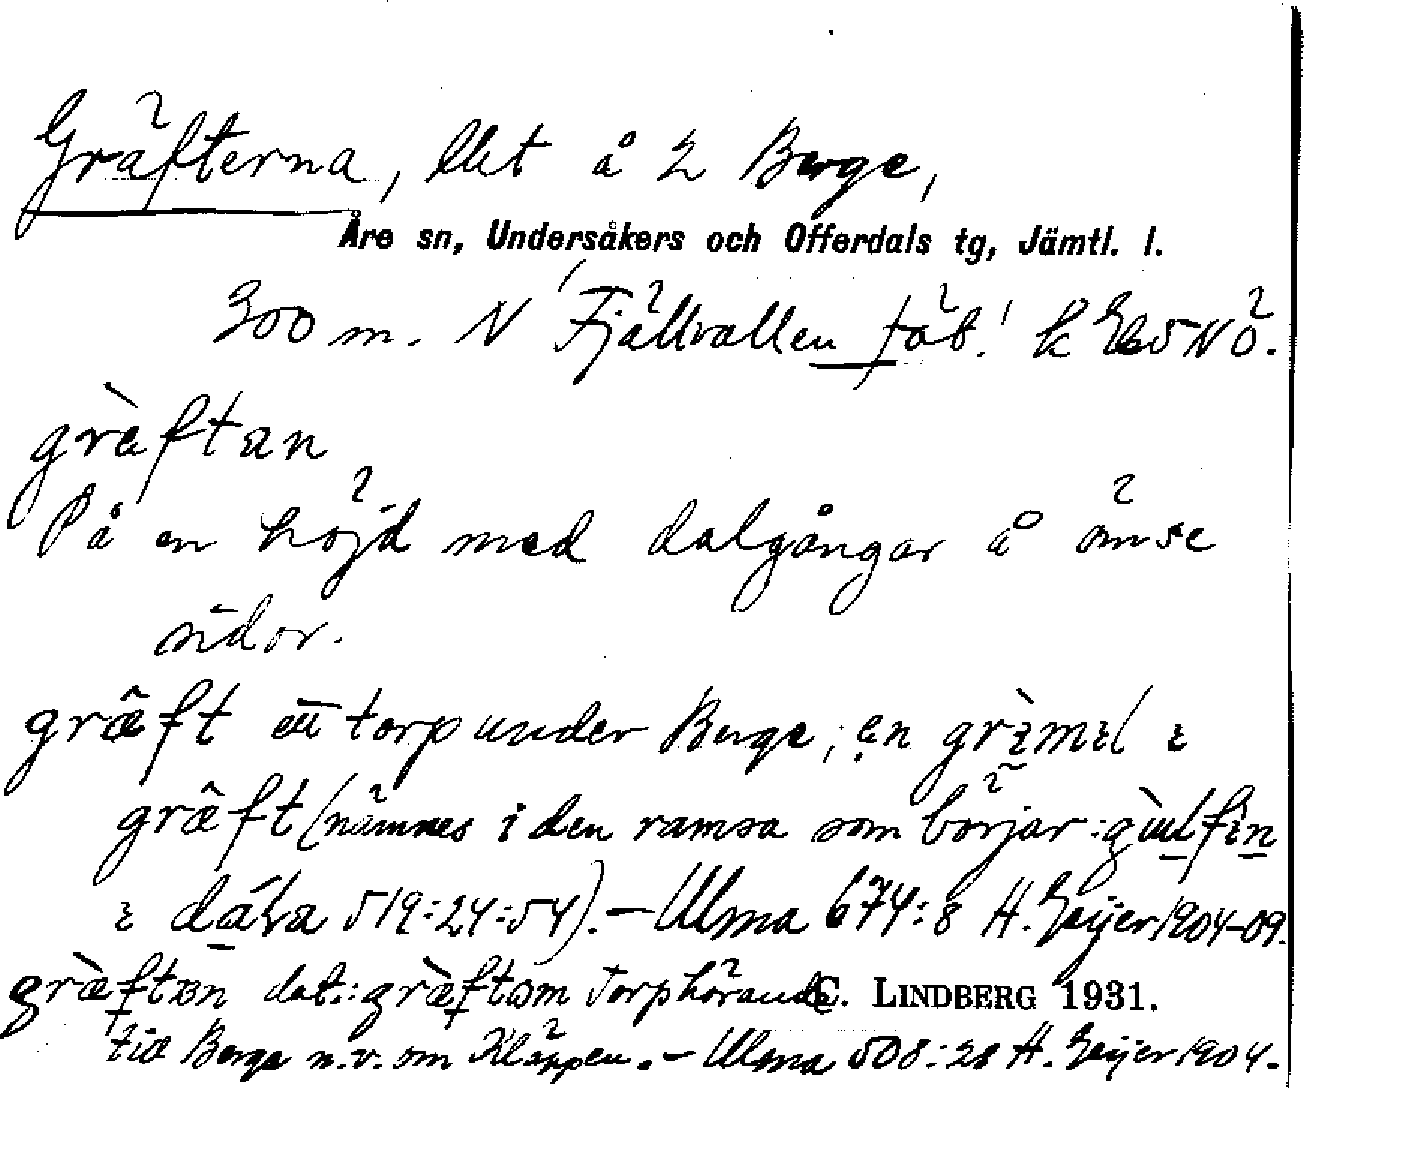 Gräfterna, llet å 2 Berge,
Åre sn, Undersåkers och Offerdals tg, Jämtl. l.
300 m. N Fjällvallen fäb.! k Eb5NÖ.
græ̀ftan
På en höjd med dalgångar å ömse
sidor.
græ̂ft ett torp under Berge; en
græ̂ft (nämnes i den ramsa som börjar:
519:24:54). — Ulma 674:8 H. Geijer 1904-09.
græ̀ftɷn dat.: græ̀ftɷm Torp hörande C. LINDBERG 1931.
till Berge n.v. om Kläppen. — Ulma 508:28 H. Geijer 1904.